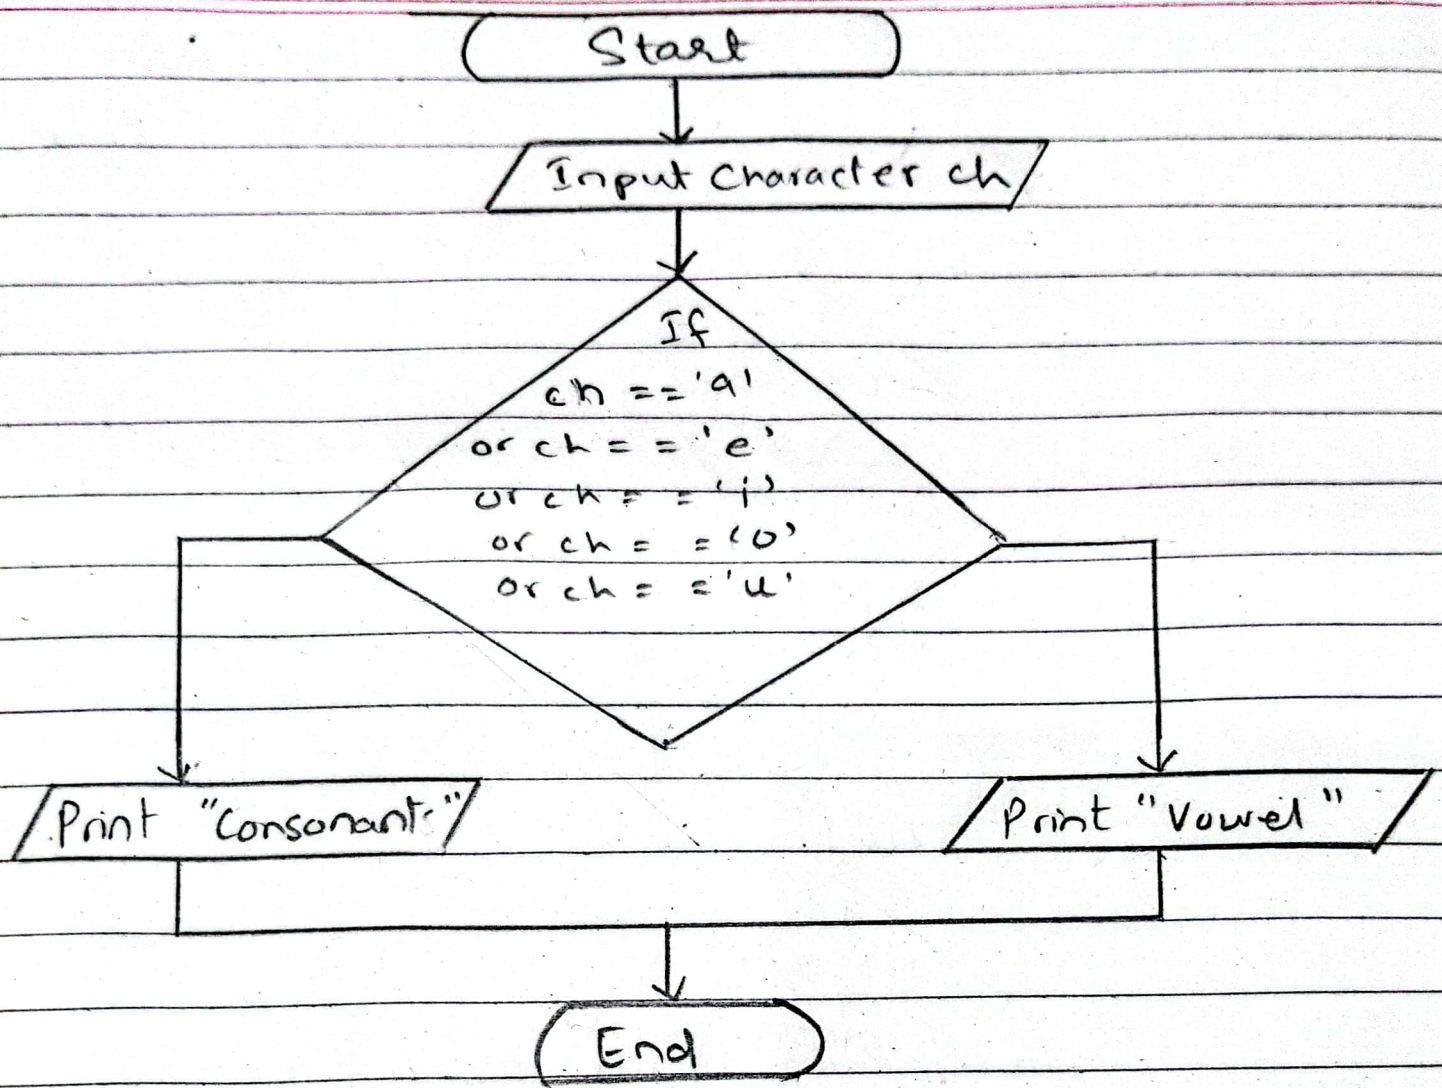 Start
Input Character ch
If
ch == 'a'
or ch = = 'e'
or ch = = 'i'
or ch = = 'o'
or ch = = 'u'
Print "Consonant"
Print "Vowel"
End